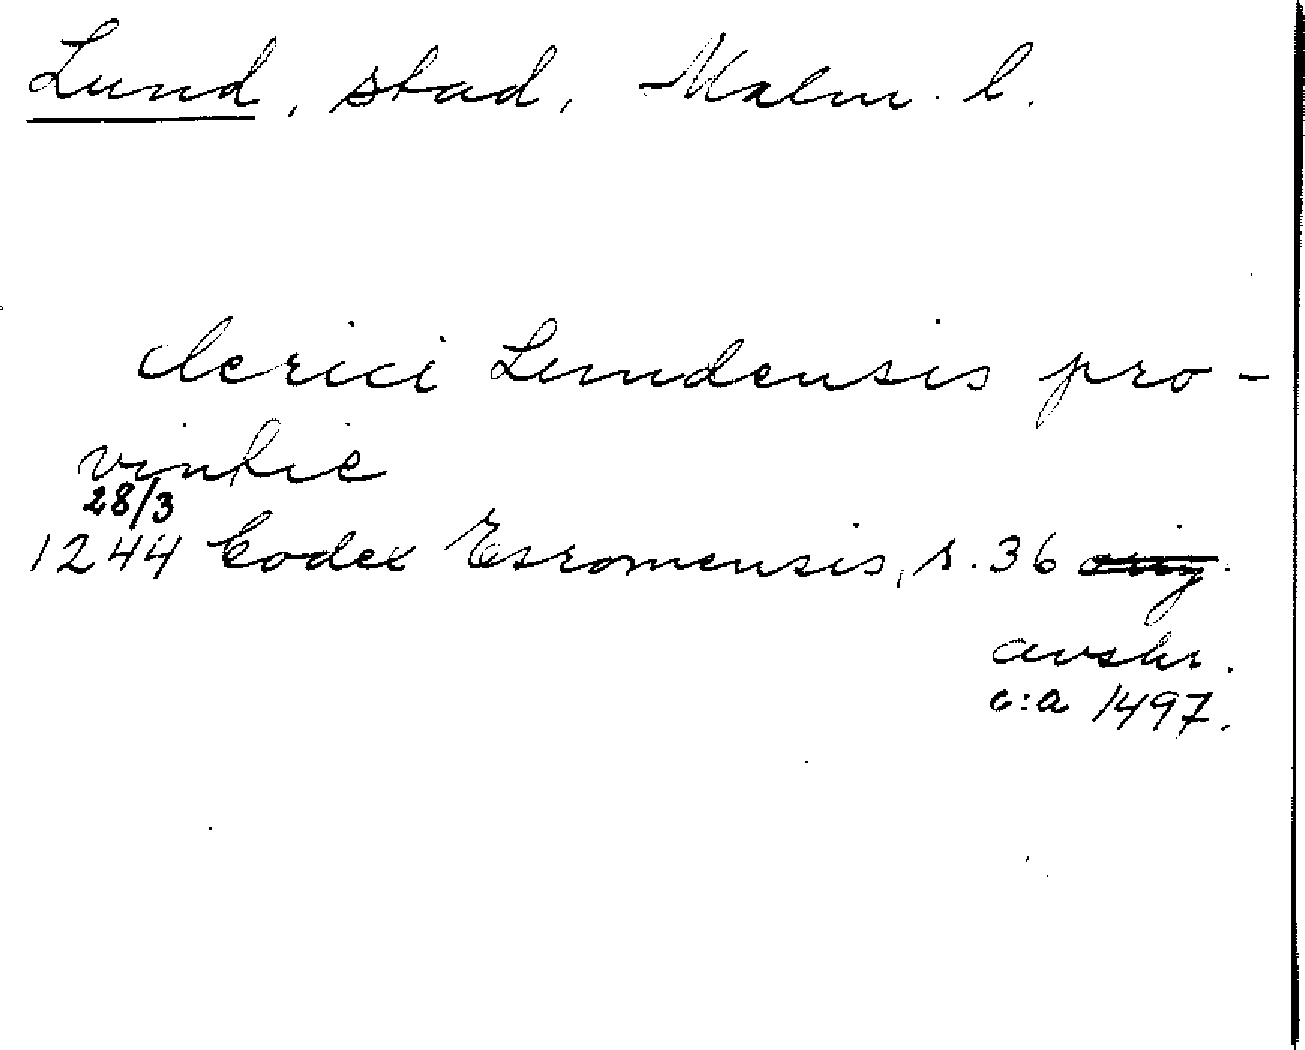 Lund, stad, Malm. l.
clerici Lundensis pro-
vintie
28/3
1244 Codex Esromensis, s. 36 orig.
avskr.
c:a 1497.